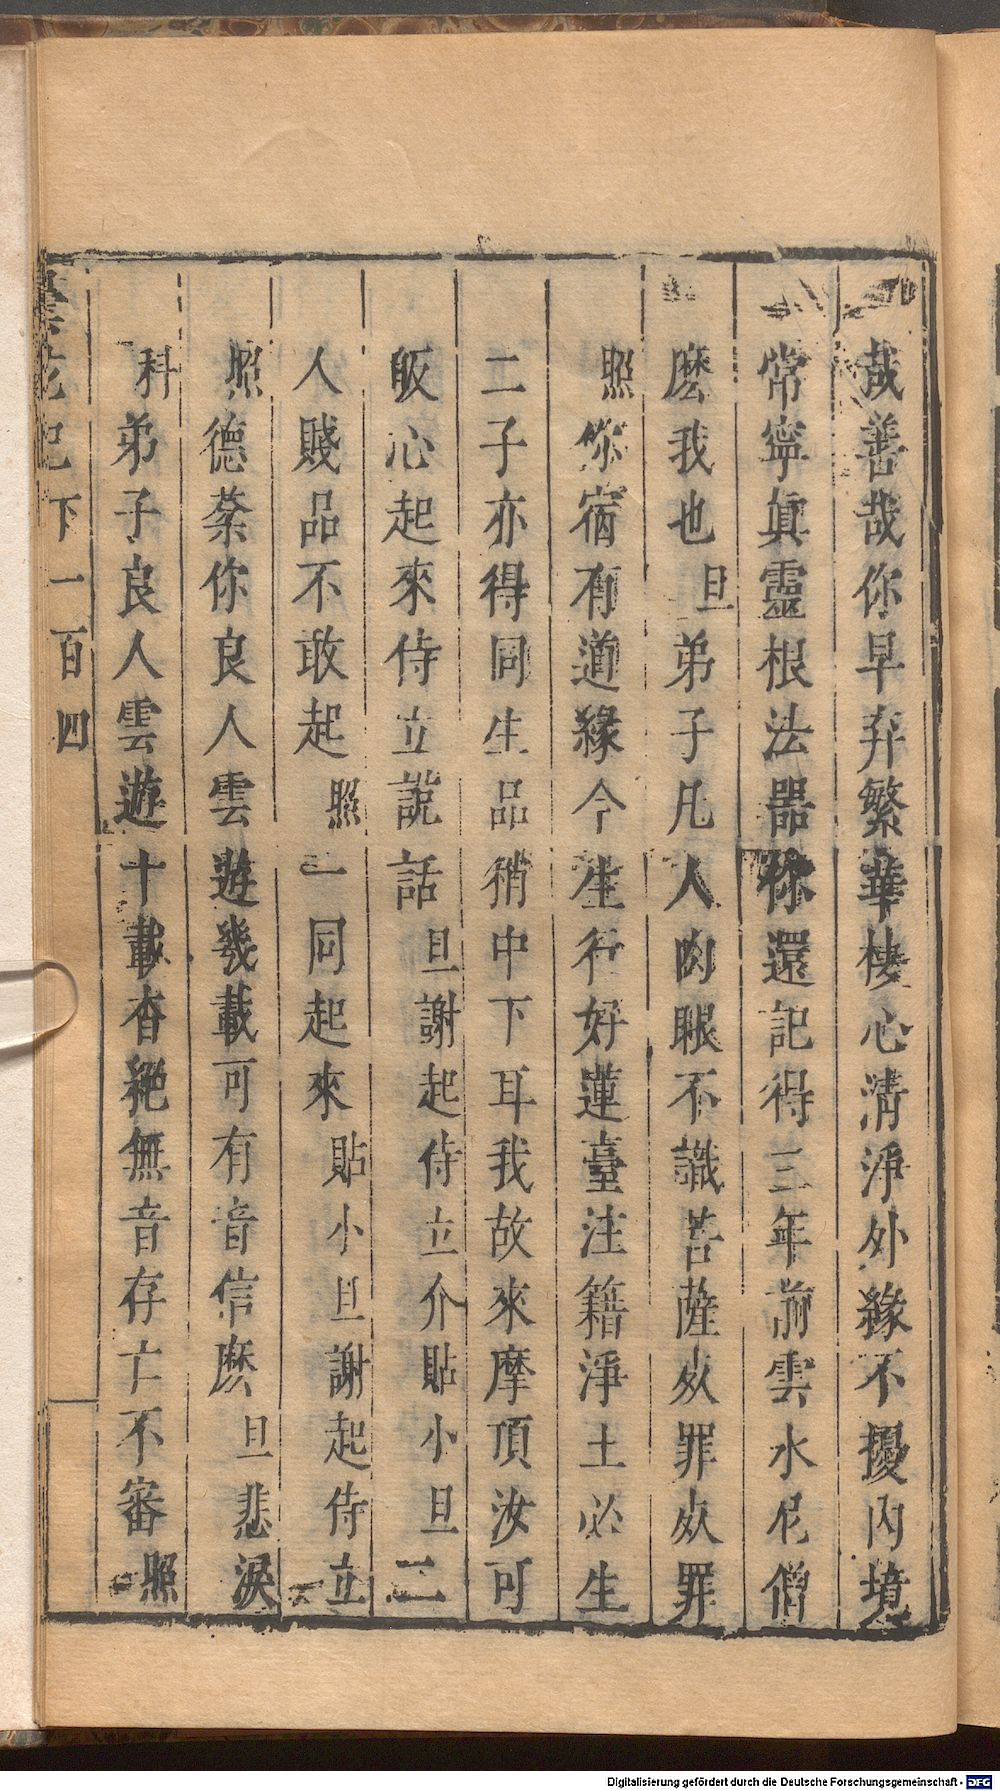 哉善哉你早弃繁華棲心清淨外緣不擾內境
常寧眞靈根法器你還記得三年前雲水尼僧
麽我也旦弟子凡人肉眼不識菩薩死罪死罪
照你宿有道緣今生行好蓮臺注籍淨土必生
二子亦得同生品稍中下耳我故來摩頂汝可
皈心起來侍立說話旦謝起侍立介貼小旦二
人賤品不敢起照一同起來貼小旦謝起侍立
照德棻你良人雲遊幾載可有音信麽旦悲淚
科弟子良人雲遊十載杳絕無音存亡不審照
曇花記下 一百四
Digitalisierung gefördert durch die Deutsche Forschungsgemeinschaft - DFG